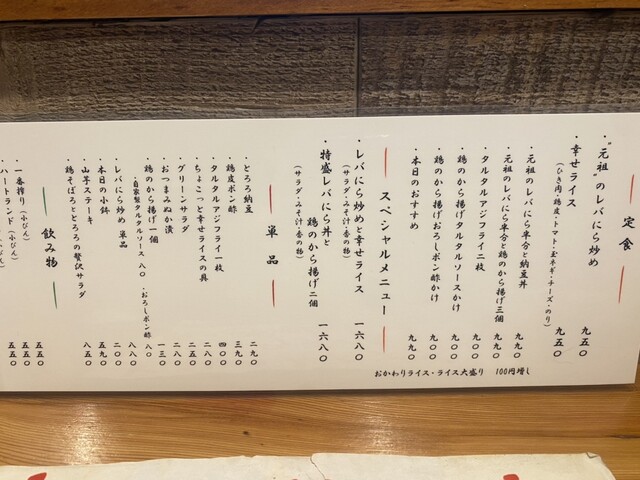 定食
・"元祖"のレバにら炒め 九五〇
・幸せライス 九五〇
(ひき肉・鶏皮・トマト・玉ネギ・チーズ・のり)
・元祖のレバにら半分と納豆丼 九九〇
・元祖のレバにら半分と鶏のから揚げ三個 九九〇
・タルタルアジフライ二枚 九九〇
・鶏のから揚げタルタルソースかけ 九九〇
・鶏のから揚げおろしポン酢かけ 九九〇
・本日のおすすめ 九九〇
おかわりライス・ライス大盛り 100円増し
スペシャルメニュー
・レバにら炒めと幸せライス 一六八〇
(サラダ・みそ汁・香の物)
・特盛レバにら丼と
鶏のから揚げ二個 一六八〇
(サラダ・みそ汁・香の物)
単品
・とろろ納豆 二九〇
・鶏皮ポン酢 三九〇
・タルタルアジフライ一枚 四〇〇
・ちょこっと幸せライスの具 二八〇
・グリーンサラダ 二五〇
・おつまみぬか漬 二八〇
・鶏のから揚げ一個 一三〇
・自家製タルタルソース 八〇 ・おろしポン酢 八〇
・レバにら炒め 単品 八八〇
・本日の小鉢 二〇〇
・山芋ステーキ 五九〇
・鶏そぼろととろろの贅沢サラダ 八五〇
飲み物
・一番搾り(小びん) 五五〇
・ハートランド(小びん) 五五〇